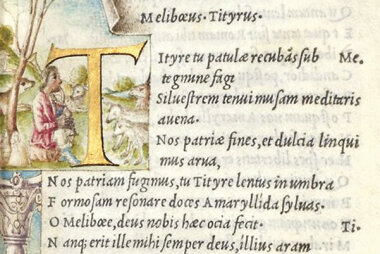 Melibœus. Tityrus.
Tityre tu patulæ recubãs sub Me.
tegmine fagi
Siluestrem tenui musam meditaris
auena.
Nos patriæ fines, et dulcia linqui
mus arua,
Nos patriam fugimus, tu Tityre lentus in umbra
Formosam resonare doces Amaryllida syluas.
O Meliboee, deus nobis hæc ocia fecit. Ti.
Nanq; erit ille mihi semper deus, illius aram